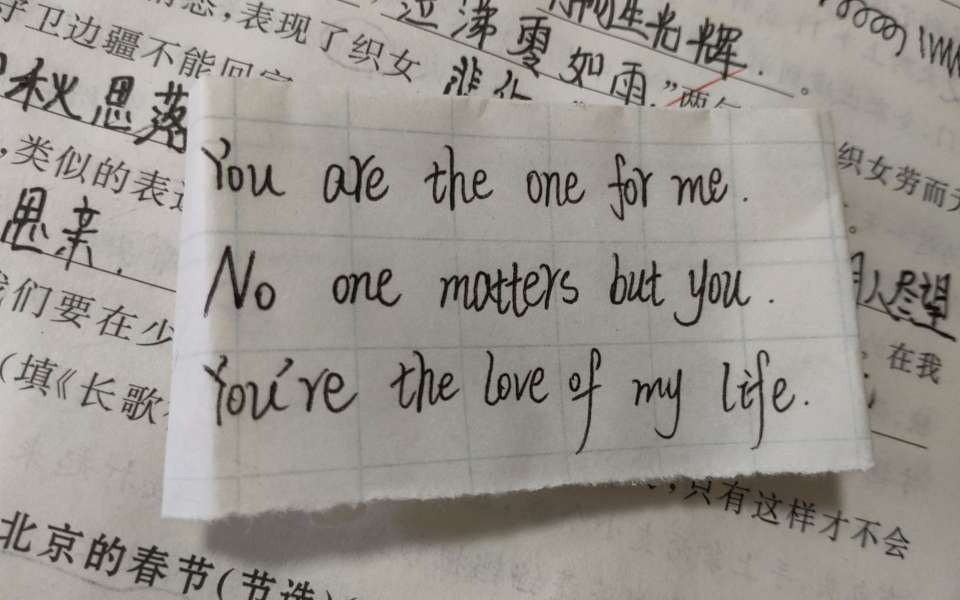 ，表现了织女
泣涕零如雨
生光辉.
守卫边疆不能回家
悲伤
秋思落
，类似的表达
织女劳而无
思亲.
人尽望
You are the one for me.
No one matters but you.
You're the love of my life.
们要在少
在我
(填《长歌
，只有这样才不会
北京的春节(节选)